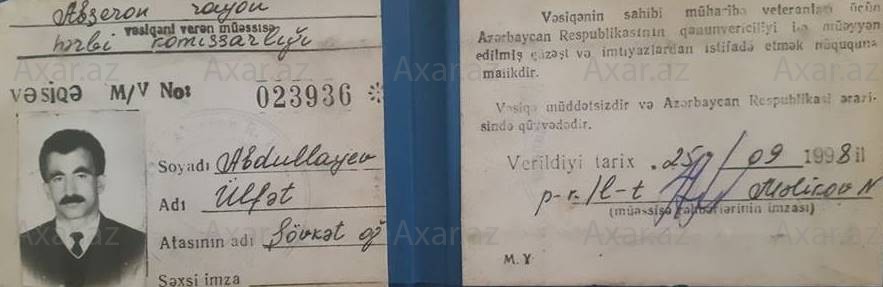 Abşeron rayon
vəsiqəni verən müəssisə
hərbi komissarlığı
VƏSİQƏ M/V No: 023936 *
Soyadı Abdullayev
Adı Ülfət
Atasının adı Şövkət oğ
Şəxsi imza
Vəsiqənin sahibi müharibə veteranları üçün
Azərbaycan Respublikasının qanunvericiliyi ilə müəyyən
edilmiş güzəşt və imtiyazlardan istifadə etmək hüququna
malikdir.
Vəsiqə müddətsizdir və Azərbaycan Respublikası ərazi-
sində qüvvədədir.
Verildiyi tarix 25 / 09 1998 il
p-r. /l-t Məlikov N
(müəssisə rəhbərlərinin imzası)
M. Y
Axar.az
Axar.az
Axar.az
Axar.az
Axar.az
Axar.az
Axar.az
Axar.az